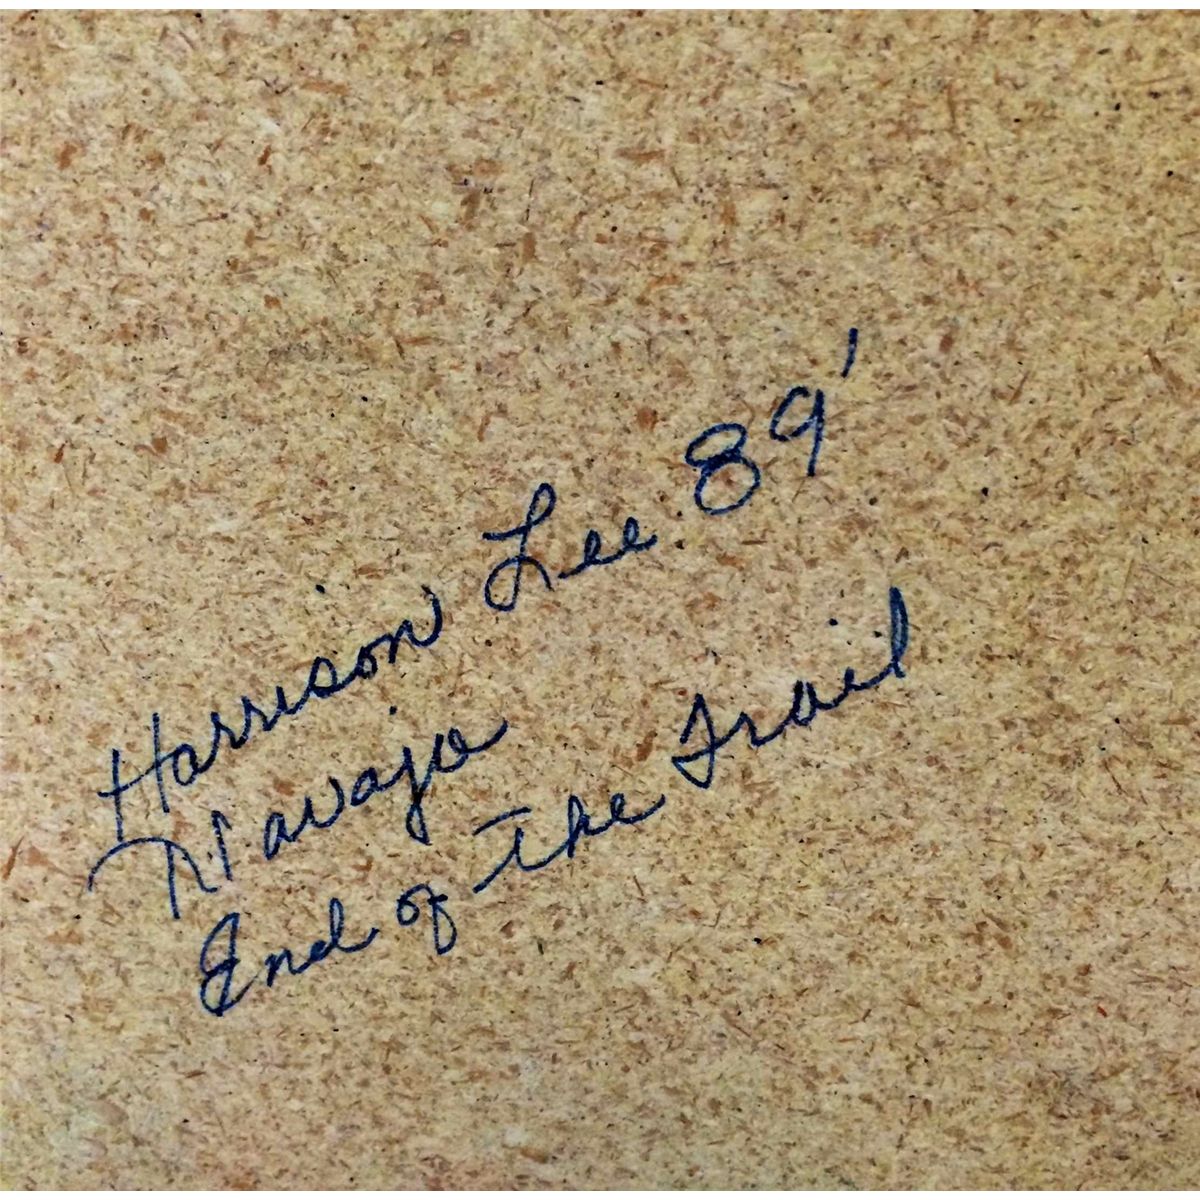 Harrison Lee 89'
Navajo
End of the Trail